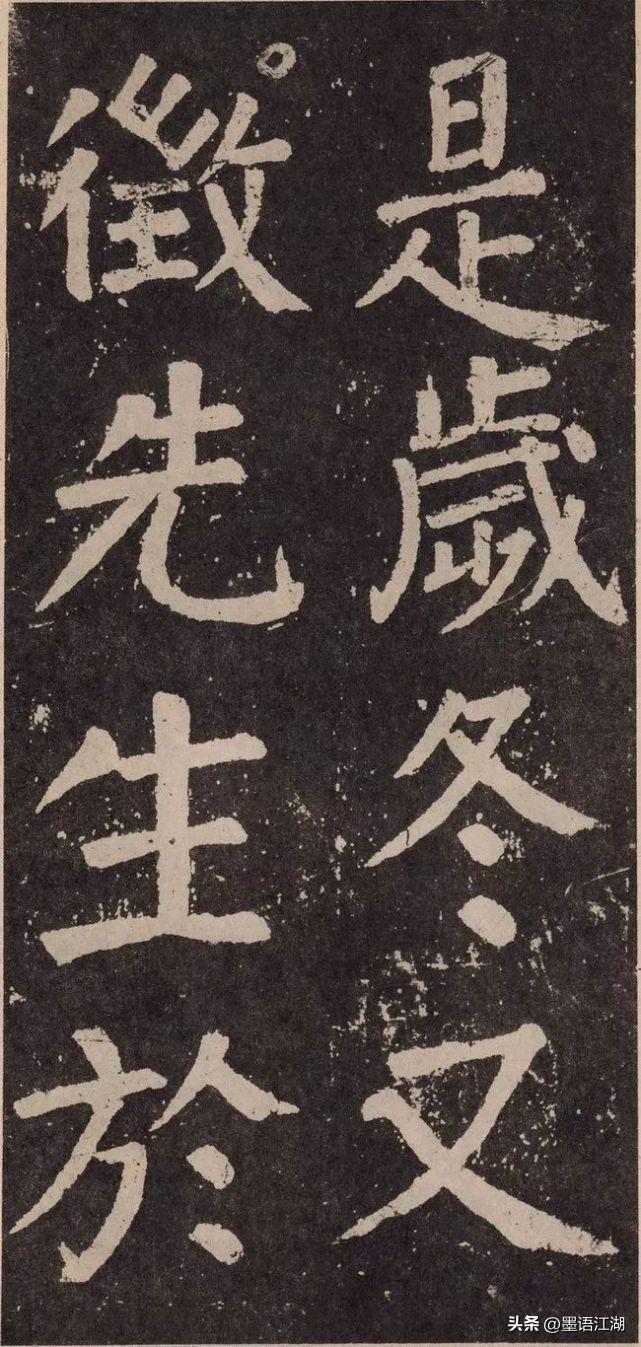 是歲冬又
徵先生於
头条 @墨语江湖